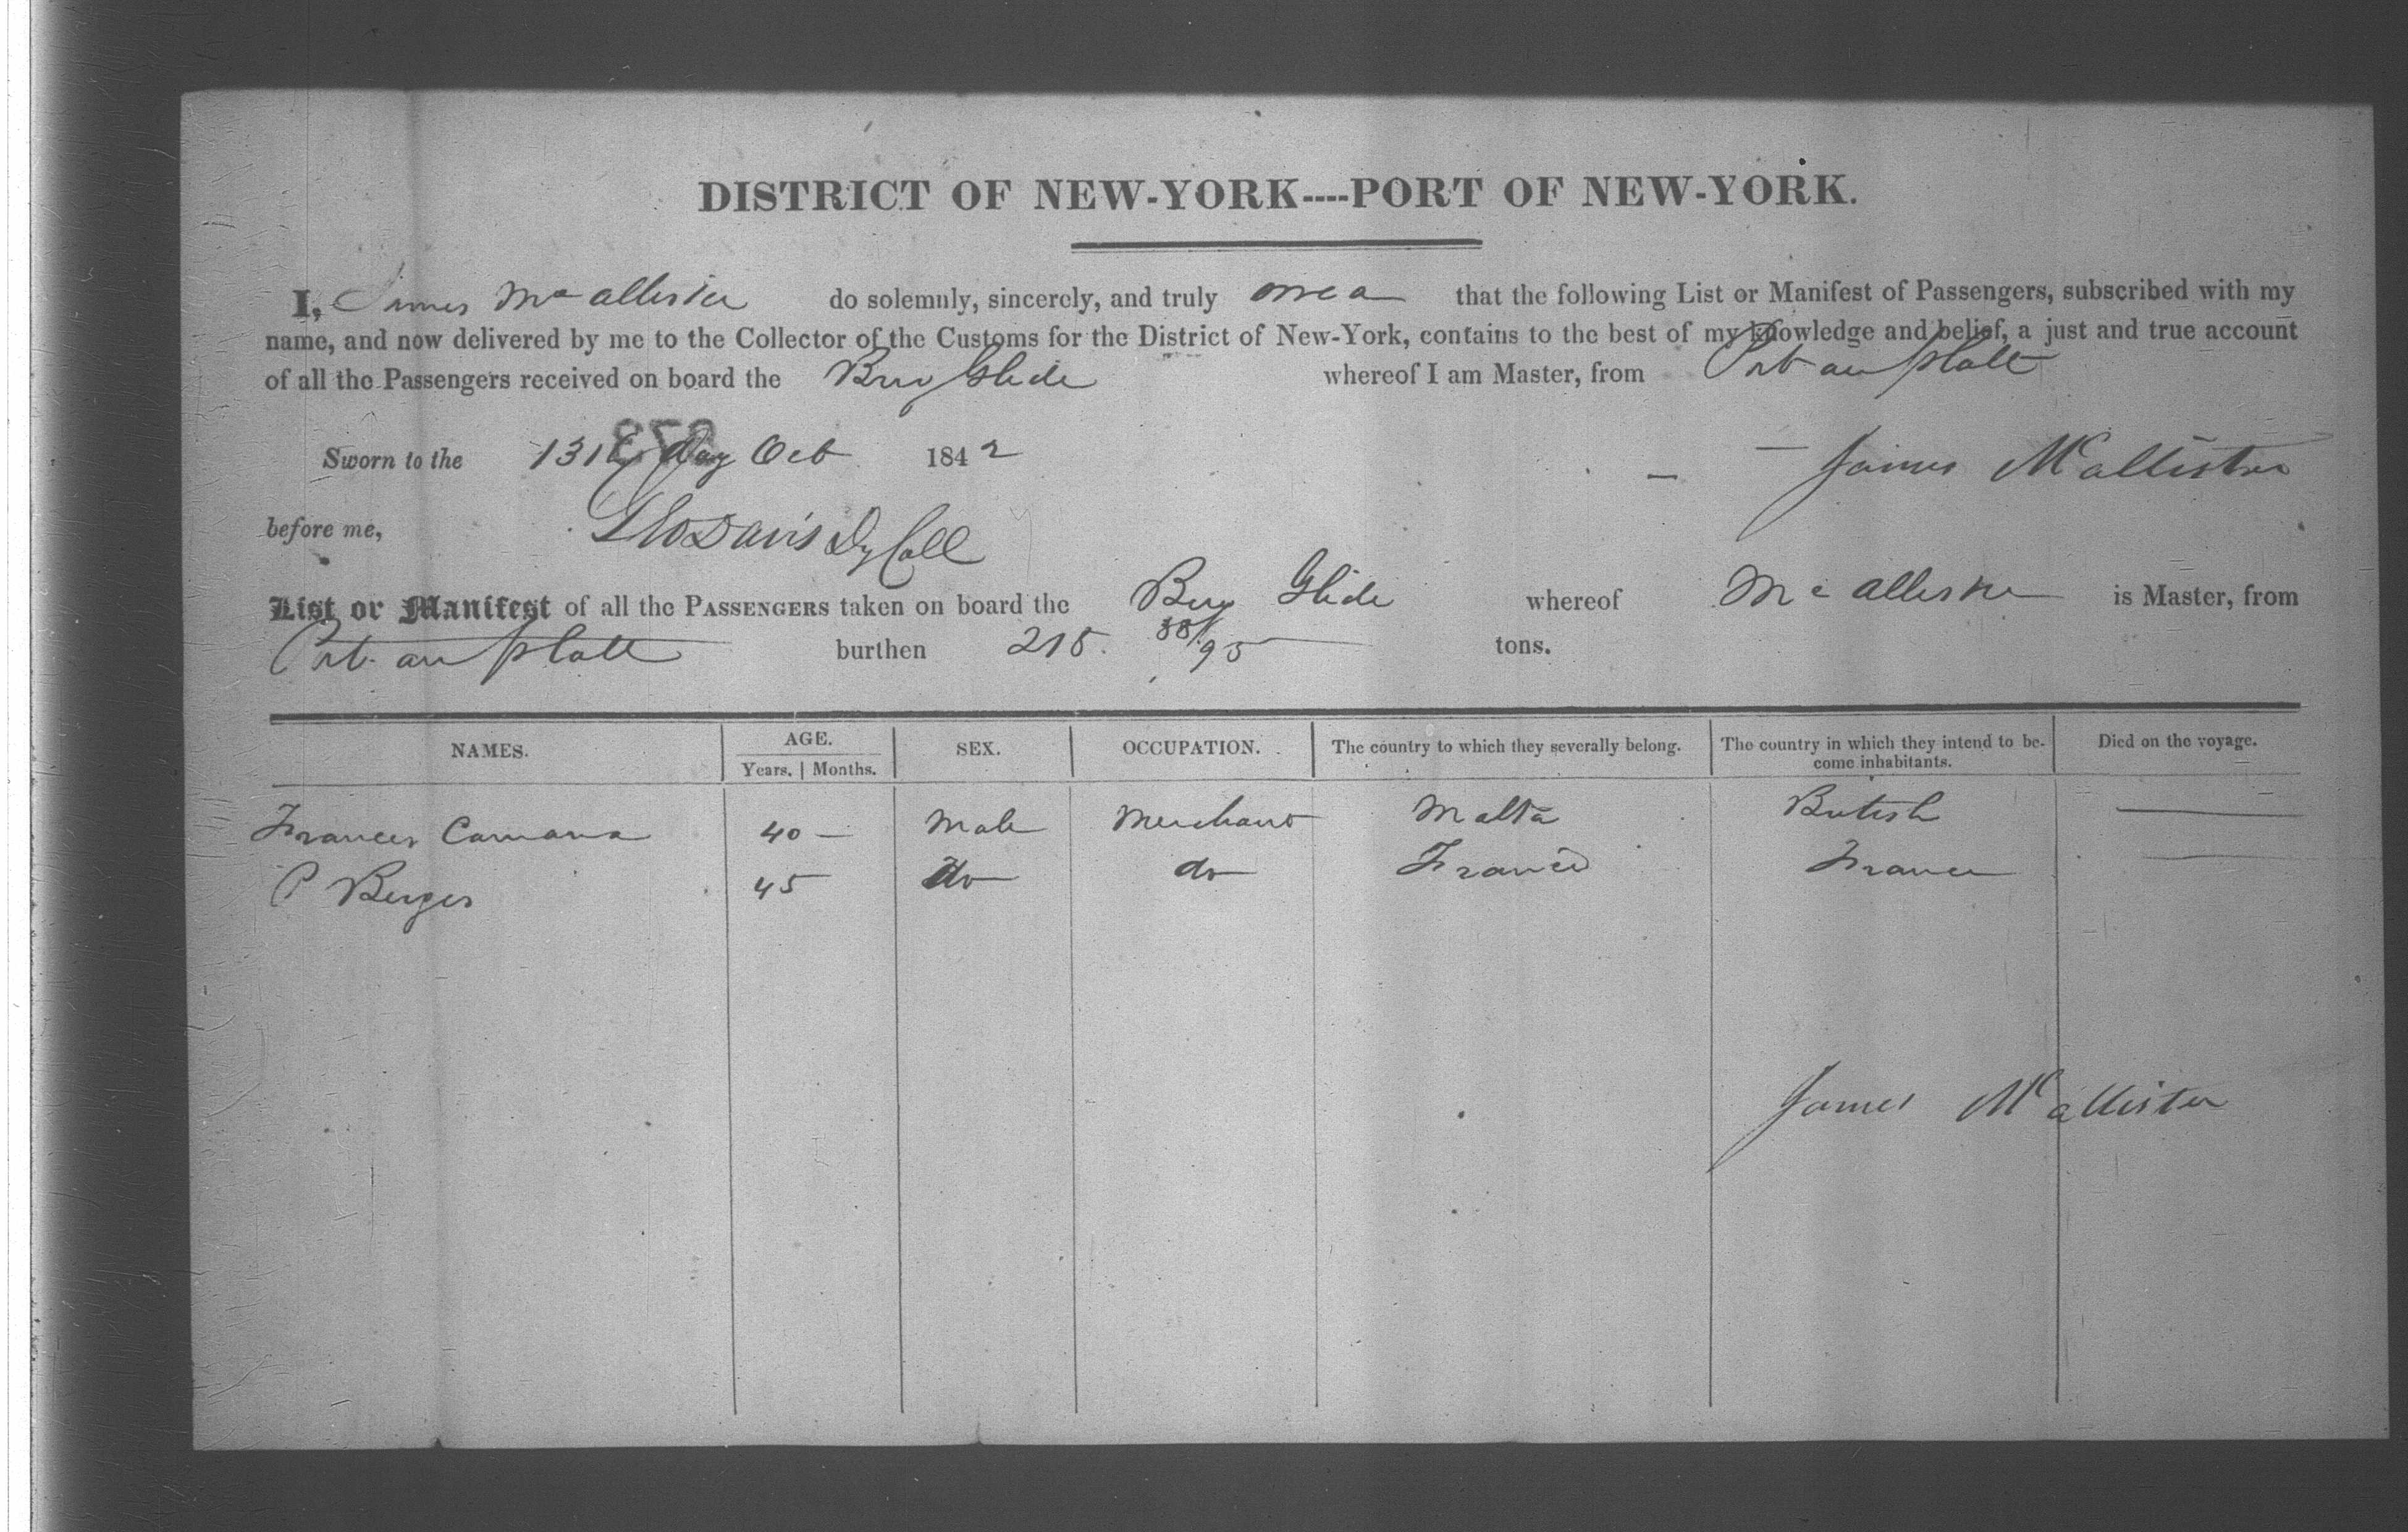 DISTRICT OF NEW-YORK----PORT OF NEW-YORK.
I, James McAllister do solemnly, sincerely, and truly swear that the following List or Manifest of Passengers, subscribed with my
name, and now delivered by me to the Collector of the Customs for the District of New-York, contains to the best of my knowledge and belief, a just and true account
of all the Passengers received on board the Brig Glide whereof I am Master, from Port au platt
Sworn to the 13th Day Oct 1842 James McAllister
before me, Tho Davis Dy Coll
List or Manifest of all the PASSENGERS taken on board the Brig Glide whereof McAllister is Master, from
Port au platt burthen 215. 88/95 tons.
NAMES. AGE. SEX. OCCUPATION. The country to which they severally belong. The country in which they intend to be-
come inhabitants. Died on the voyage.
Years. | Months.
Frances Camana 40 — Male Merchant Malta British —
P Berger 45 do do France France —
James McAllister